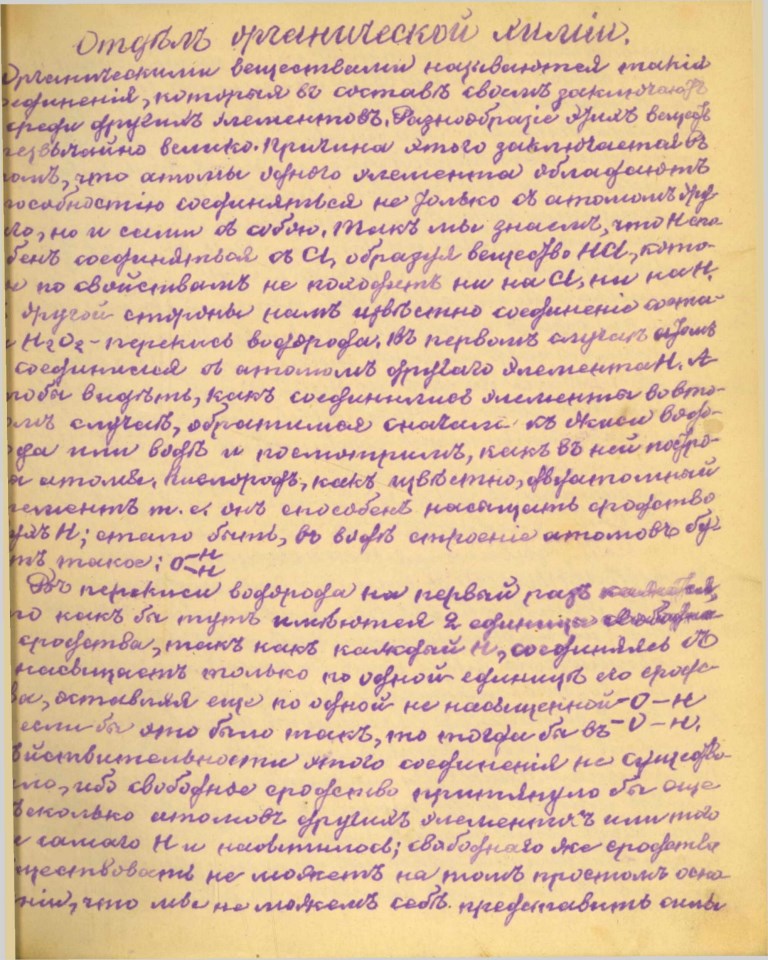 Отдѣлъ органической химіи.
Органическими веществами называются такія
соединенія, которыя въ составѣ своемъ заключаютъ
среди другихъ элементовъ. Разнообразіе этихъ веществъ
чрезвычайно велико. Причина этого заключается въ
томъ, что атомы одного элемента обладаютъ
способностію соединяться не только съ атомомъ дру
ого, но и сами съ собою. Такъ мы знаемъ, что H спо
бенъ соединяться съ Cl, образуя вещество HCl, кото-
е по свойствамъ не походитъ ни на Cl, ни на H.
другой стороны намъ извѣстно соединеніе соста-
H2O2 - перекись водорода. Въ первомъ случаѣ атомъ
соединился съ атомомъ другаго элемента H. А
чтобы видѣть, какъ соединились элементы во вто-
омъ случаѣ, обратимся сначала къ окиси водо-
ода или водѣ и посмотримъ, какъ въ ней постро-
ы атомы. Кислородъ, какъ извѣстно, двуатомный
элементъ т. е. онъ способенъ насыщать сродство
двухъ H; стало быть, въ водѣ строеніе атомовъ бу-
тъ такое: O-H
-H
Въ перекиси водорода на первый разъ кажется,
что какъ бы тутъ имѣются 2 единицы свободна
сродства, такъ какъ каждый H, соединяясь съ
насыщаетъ только по одной единицѣ его сродс-
ва, оставляя еще по одной не насыщенной -O-H
если бы это было такъ, то тогда бы въ -O-H.
дѣйствительности этого соединенія не существо
ало, ибо свободное сродство притянуло бы еще
нѣсколько атомовъ другихъ элементовъ или того
же самаго H и насытилось; свободнаго же сродства
существовать не можетъ на томъ простомъ осно
ніи, что мы не можемъ себѣ представить силы